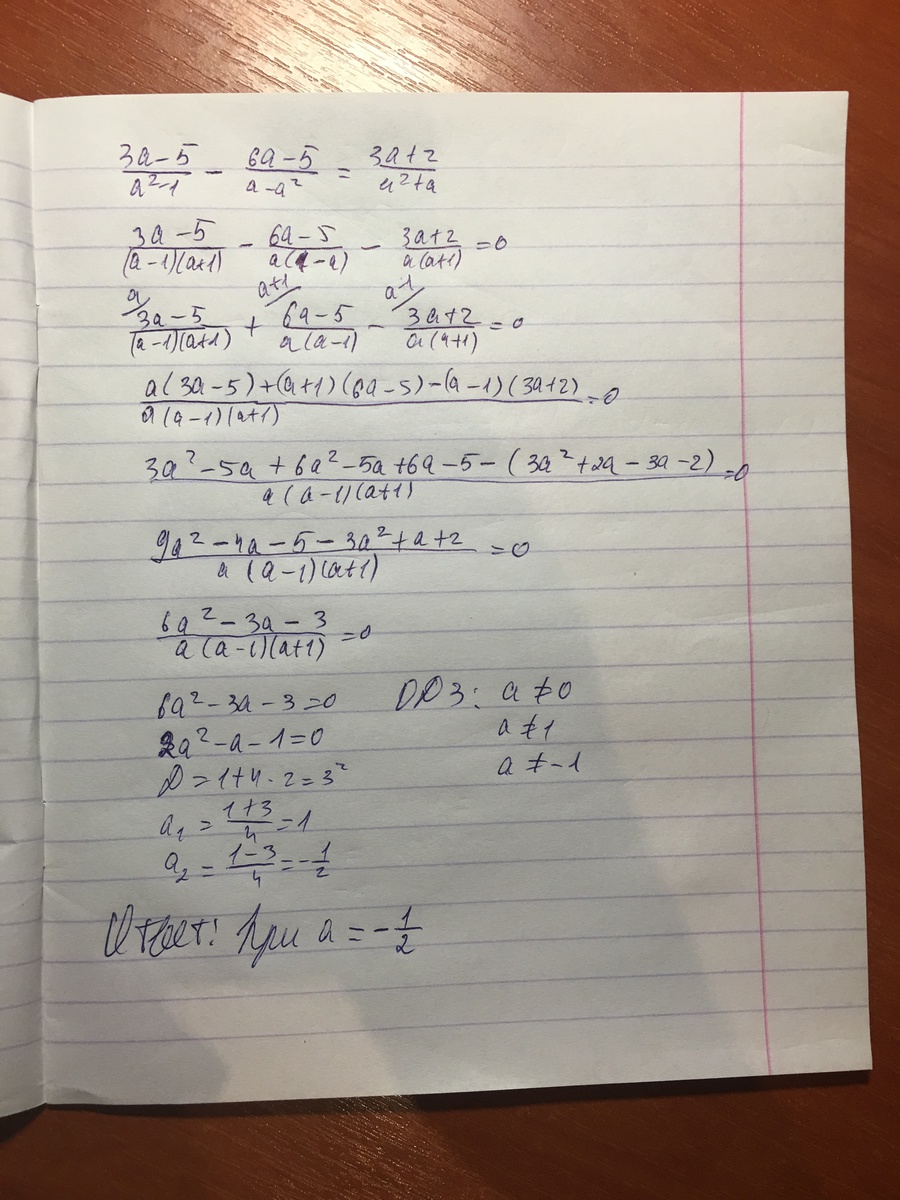 (3a-5)/(a²-1) - (6a-5)/(a-a²) = (3a+2)/(a²+a)
(3a-5)/((a-1)(a+1)) - (6a-5)/(a(1-a)) - (3a+2)/(a(a+1)) = 0
a/ a+1/ a-1/
(3a-5)/((a-1)(a+1)) + (6a-5)/(a(a-1)) - (3a+2)/(a(a+1)) = 0
(a(3a-5)+(a+1)(6a-5)-(a-1)(3a+2))/(a(a-1)(a+1)) = 0
(3a²-5a+6a²-5a+6a-5-(3a²+2a-3a-2))/(a(a-1)(a+1)) = 0
(9a²-4a-5-3a²+a+2)/(a(a-1)(a+1)) = 0
(6a²-3a-3)/(a(a-1)(a+1)) = 0
6a²-3a-3=0 ОДЗ: a≠0
2a²-a-1=0 a≠1
D=1+4·2=3² a≠-1
a₁ = (1+3)/4 = 1
a₂ = (1-3)/4 = -1/2
Ответ: при a = -1/2